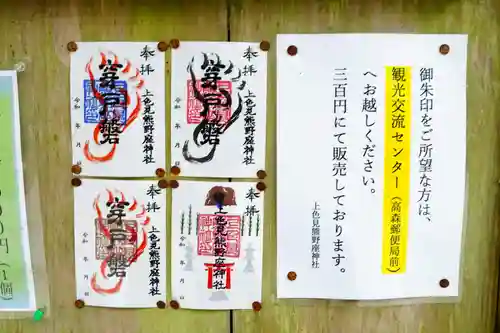 御朱印をご所望な方は、
観光交流センター(高森郵便局前)
へお越しください。
三百円にて販売しております。
上色見熊野座神社
奉拝
上色見熊野座神社
穿戸磐
令和 年 月
奉拝
上色見熊野座神社
穿戸磐
令和 年 月
奉拝
上色見熊野座神社
穿戸磐
令和 年 月
奉拝
上色見熊野座神社
令和 年 月
円(1個